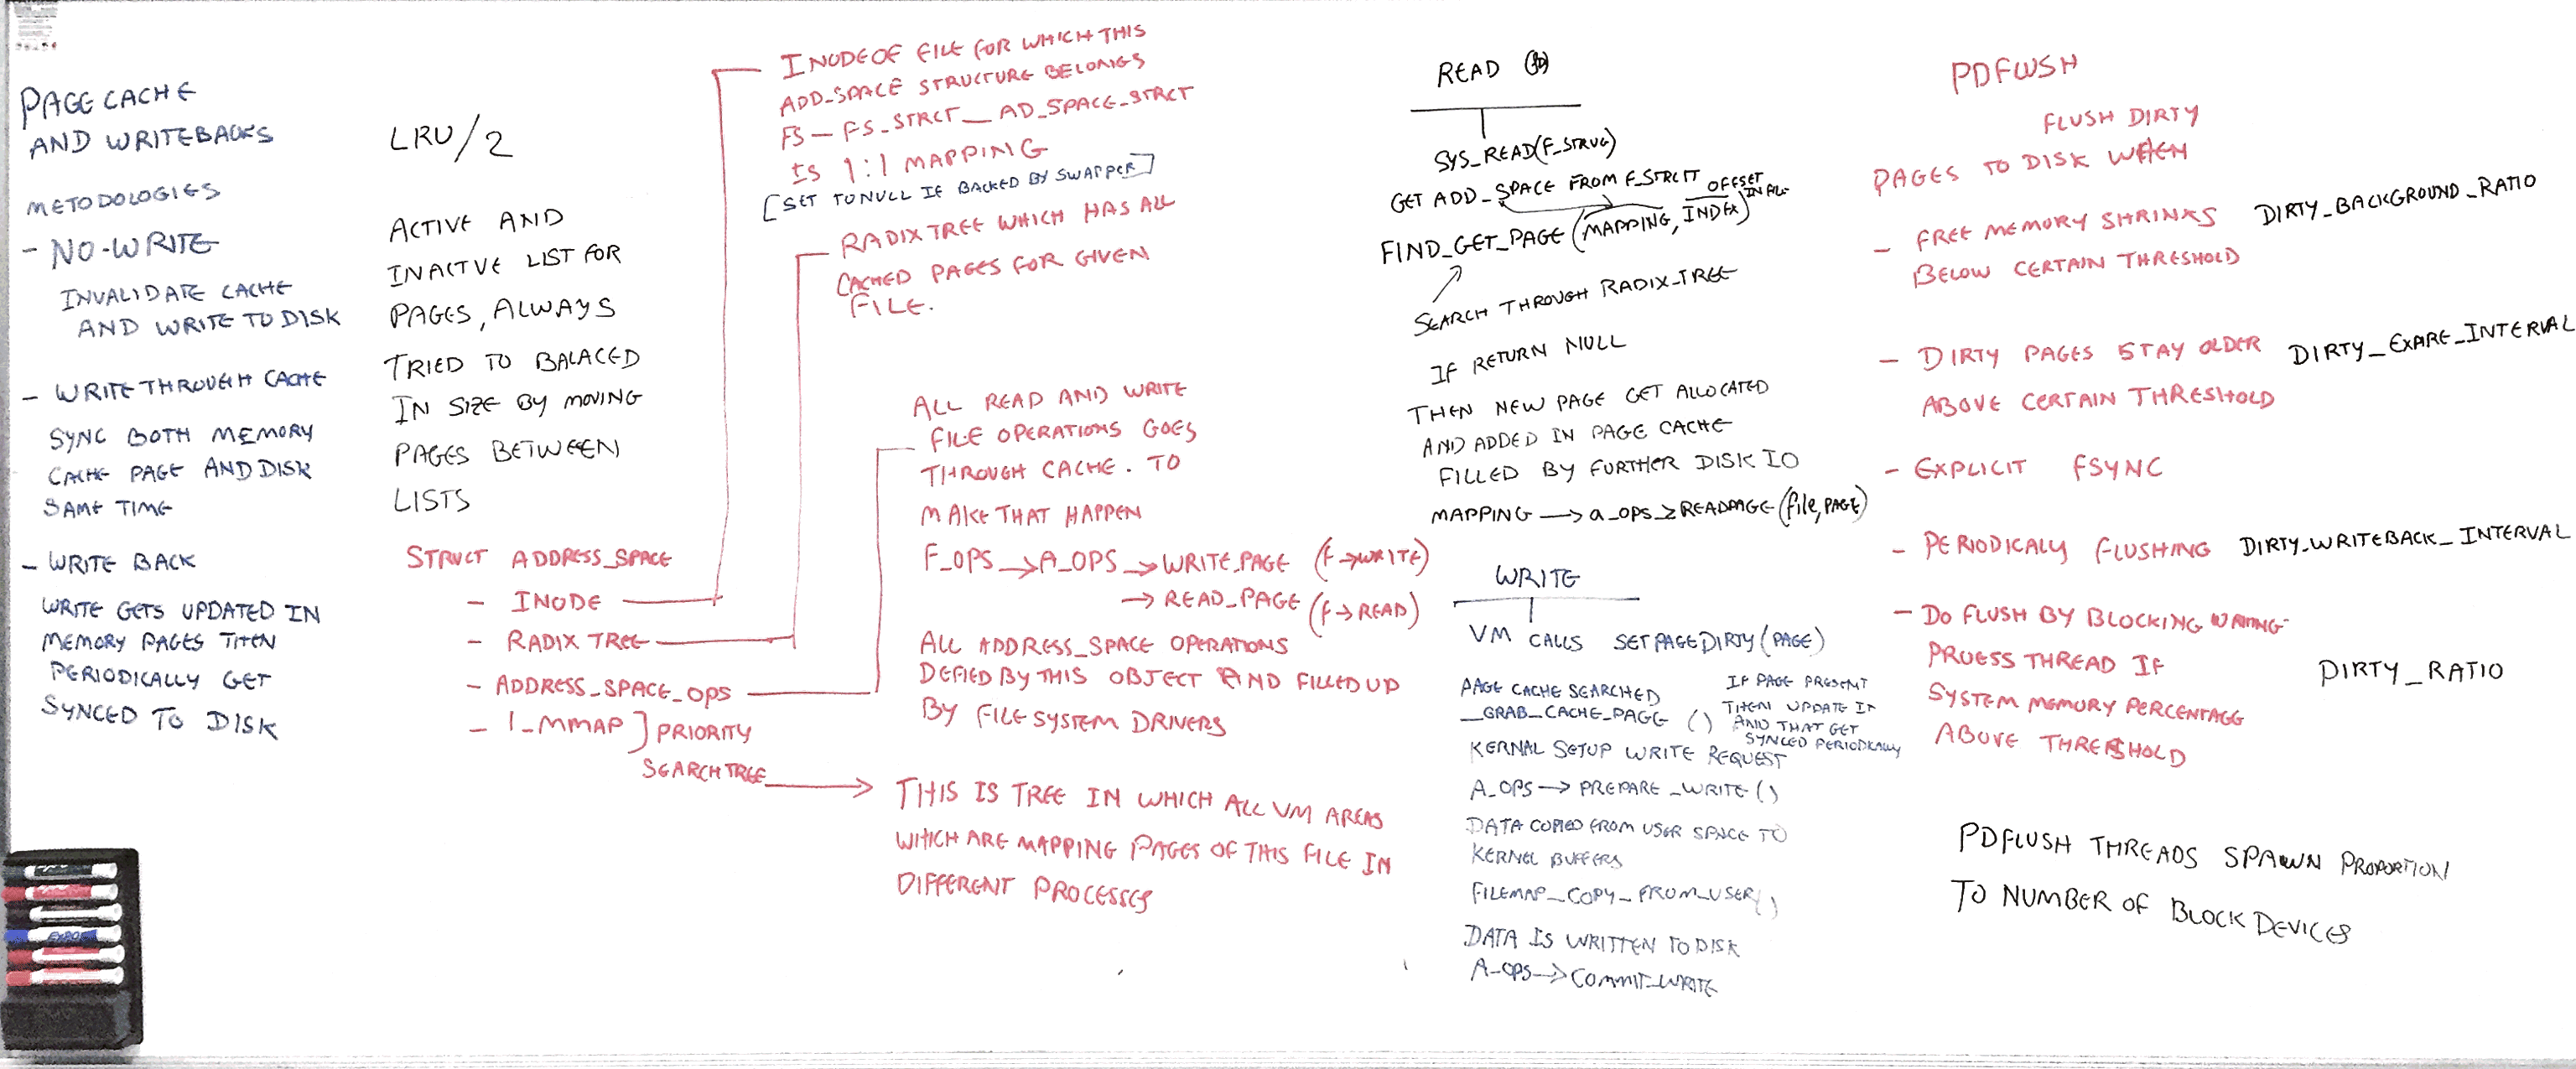 PAGE CACHE
AND WRITEBACKS
METODOLOGIES
- NO-WRITE
INVALIDATE CACHE
AND WRITE TO DISK
- WRITE THROUGH CACHE
SYNC BOTH MEMORY
CACHE PAGE AND DISK
SAME TIME
- WRITE BACK
WRITE GETS UPDATED IN
MEMORY PAGES THEN
PERIODICALLY GET
SYNCED TO DISK
LRU/2
ACTIVE AND
INACTVE LIST FOR
PAGES, ALWAYS
TRIED TO BALACED
IN SIZE BY MOVING
PAGES BETWEEN
LISTS
STRUCT ADDRESS_SPACE
- INODE
- RADIX TREE
- ADDRESS_SPACE_OPS
- I_MMAP ] PRIORITY
SEARCH TREE
INODE OF FILE FOR WHICH THIS
ADD_SPACE STRUCTURE BELONGS
FS - FS_STRCT _ AD_SPACE_STRCT
IS 1:1 MAPPING
[SET TO NULL IF BACKED BY SWAPPER]
RADIX TREE WHICH HAS ALL
CACHED PAGES FOR GIVEN
FILE.
ALL READ AND WRITE
FILE OPERATIONS GOES
THROUGH CACHE. TO
MAKE THAT HAPPEN
F_OPS → A_OPS → WRITE_PAGE (F→WRITE)
→ READ_PAGE (F→READ)
ALL ADDRESS_SPACE OPERATIONS
DEFIED BY THIS OBJECT AND FILLED UP
BY FILE SYSTEM DRIVERS
→ THIS IS TREE IN WHICH ALL VM AREAS
WHICH ARE MAPPING PAGES OF THIS FILE IN
DIFFERENT PROCESSES
READ
SYS_READ(F_STRUC)
GET ADD_SPACE FROM F_STRCTT
OFFSET
IN FILE
FIND_GET_PAGE (MAPPING, INDEX)
SEARCH THROUGH RADIX_TREE
IF RETURN NULL
THEN NEW PAGE GET ALLOCATED
AND ADDED IN PAGE CACHE
FILLED BY FURTHER DISK IO
MAPPING → a_OPS → READPAGE (file, PAGE)
WRITE
VM CALLS SETPAGEDIRTY (PAGE)
PAGE CACHE SEARCHED
__GRAB_CACHE_PAGE ()
IF PAGE PRESENT
THEN UPDATE IT
AND THAT GET
SYNCED PERIODICALLY
KERNAL SETUP WRITE REQUEST
A_OPS → PREPARE_WRITE ()
DATA COPIED FROM USER SPACE TO
KERNEL BUFFERS
FILEMAP_COPY_FROM_USER()
DATA IS WRITTEN TO DISK
A_OPS → COMMIT_WRITE
PDFLUSH
FLUSH DIRTY
PAGES TO DISK WHEN
- FREE MEMORY SHRINKS DIRTY_BACKGROUND_RATIO
BELOW CERTAIN THRESHOLD
- DIRTY PAGES STAY OLDER DIRTY_EXPIRE_INTERVAL
ABOVE CERTAIN THRESHOLD
- EXPLICIT FSYNC
- PERIODICALY FLUSHING DIRTY_WRITEBACK_INTERVAL
- DO FLUSH BY BLOCKING WRITING
PRUESS THREAD IF
SYSTEM MEMORY PERCENTAGE
ABOVE THRESHOLD
DIRTY_RATIO
PDFLUSH THREADS SPAWN PROPORTION
TO NUMBER OF BLOCK DEVICES
EXPO